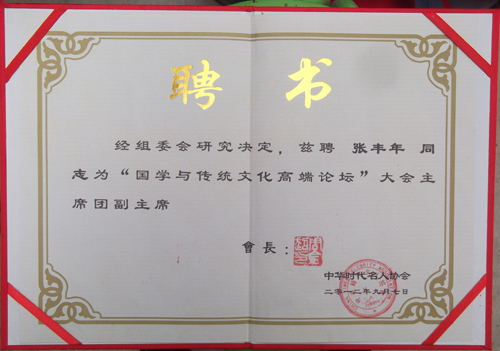 聘书
经组委会研究决定，兹聘 张丰年 同
志为“国学与传统文化高端论坛”大会主
席团副主席
會長：
中华时代名人协会
二零一二年九月七日